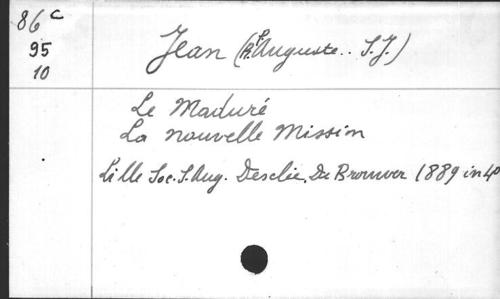 86 c
95
10
Jean (P. Auguste.. S. J.)
Le Maduré
La nouvelle Mission
Lille Soc. S. Aug. Desclée, De Brouwer 1889 in 4o